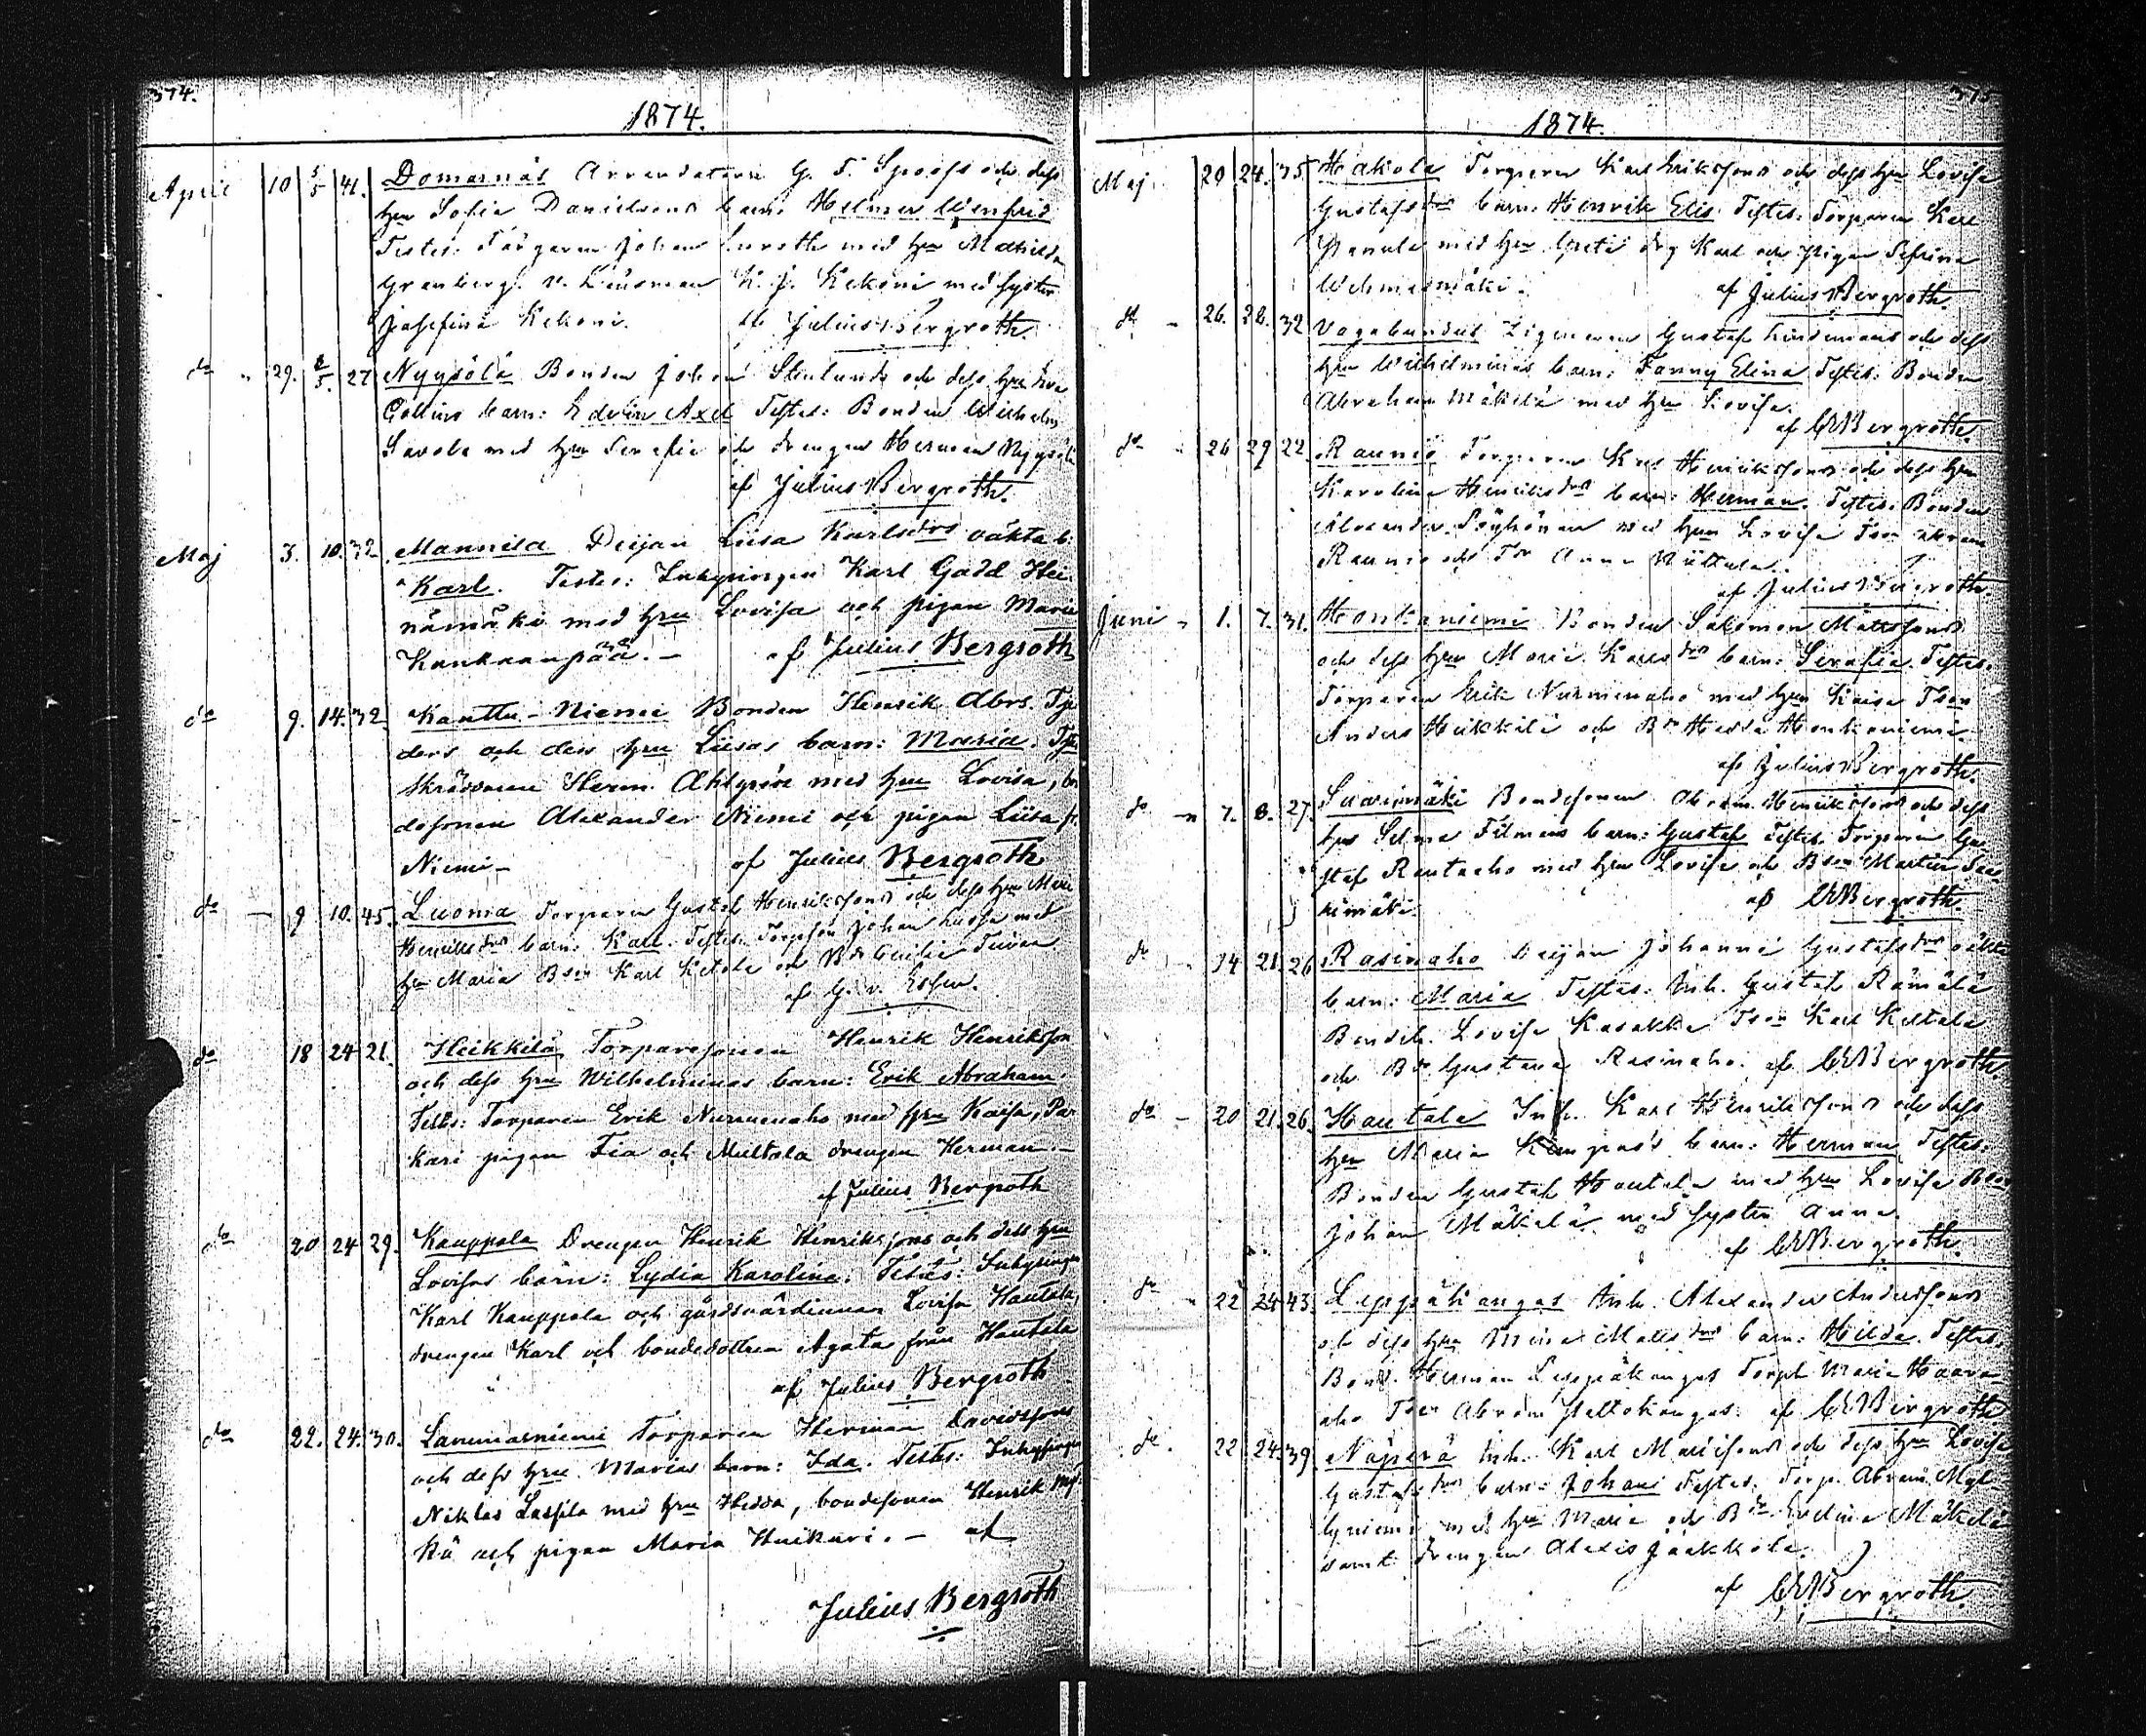 374.
1874.
April 10 5/5 41. Domarnäs Arrendatorn G. T. Spoofs och dess
hru Sofia Danielsons barn: Helmer Wenfrid
Testes: Färgaren Johan med hru Mathilda
Granberg. v. Länsman K. J. Kekoni med syster
Josefina Kekoni. af Julius Bergroth.
do " 29. 5. 27 Nyysölä Bonden Johan Stenlunds och dess hru Eva
Collins barn: Edvin Axel Testes: Bonden Wilhelm
Savola med hru Serafia och drengen Herman Nyysölä
af Julius Bergroth.
Maj 3. 10. 32. Mannila Deijan Liisa Karlsdrs oäkta b:
Karl. Testes: Inhysingen Karl Gadd Hei-
nämäki med hru Lovisa och pigan Maria
Kankaanpää. – af Julius Bergroth
do 9. 14. 32 Kanttu-Niemi Bonden Henrik Abrs. Tju
ders och dess hru Liisas barn: Maria. Tste
Skräddaren Herm. Ahlgrén med hru Lovisa, bo
desonen Alexander Niemi och pigan Liisa fr.
Niemi – af Julius Bergroth
do – 9 10. 45. Luoma Torparen Gustaf Henrikssons och dess hru Maria
Henriksdrs barn: Karl. Testes: Torpson Johan med
hru Maria Bson Karl Ketola och Bdr Cecilia
af G. v. Essen.
do 18 24 21. Heikkilä Torparesonen Henrik Henriksson
och dess hru Wilhelminas barn: Erik Abraham.
Testes: Torparen Erik Nurmenaho med hru Kaisa, Pu
kari pigan Fia och Multala drengen Herman. –
af Julius Bergroth
do 20 24 29. Kauppola Drengen Henrik Henrikssons och dess hru
Lovisas barn: Lydia Karolina. Testes: Inhysingen
Karl Kauppola och gårdsvärdinnan Lovisa Hautala,
drengen Karl och bondedottren Agata från Hautala
af Julius Bergroth
do 22. 24. 30. Lammasniemi Torparen Herman Davidssons
och dess hru Marias barn: Ida. Testes: Inhysingen
Niklas Lassila med hru Hedda, bondesonen Henrik
kä och pigan Maria Huikuri. – af
Julius Bergroth
375
1874.
Maj. 20 24. 35. Hakola Torparen Karl Erikssons och dess hru Lovisa
Gustafsdrs barn: Henrik Elis. Testes: Torparen Karl
med hru Greta drg Karl och pigan Sefrina
Wehmasmäki. af Julius Bergroth.
do – 26. 28. 32 Vagabundus Zigenaren Gustaf Lindemans och dess
hru Wilhelminas barn: Fanny Elina Testes: Bonden
Abraham Mäkelä med hru Lovisa.
af CEBergroth.
do 26 29 22. Raunio Torparen Karl Henrikssons och dess hru
Karolina Henriksdrs barn: Herman. Testes: Bonden
Alexander Pöyhönen med hru Lovisa Tson Abram
Raunio och Tdr Anna Niittula.
af Julius Bergroth.
Juni – 1. 7. 31. Honkaniemi Bonden Salomon Mattssons
och dess hru Maria Karlsdrs barn: Serafia. Testes:
Torparen Erik Nurmenaho med hru Kaisa Tson
Anders Heikkilä och Bdr Hedda Honkaniemi
af Julius Bergroth.
do – 7. 8. 27. Bondesonen Abram Henrikssons och dess
hru Selma Filmans barn: Gustaf Testes: Torparen Gu-
staf Rautaaho med hru Lovisa och Bson Martin
kimäki. af CEBergroth.
do – 14 21. 26 Rasinaho Deijan Johanna Gustafsdrs oäkta
barn: Maria Testes: Inh. Gustaf Rämälä
Bondeh. Lovisa Kasakka Tson Karl Keltala
och Bdr Gustava Rasinaho. af CEBergroth.
do – 20 21. 26. Hautala Inh. Karl Henrikssons och dess
hru Maria Kempas's barn: Herman Testes:
Bonden Gustaf Hautala med hru Lovisa Bson
Johan Mäkelä med syster Anna.
af CEBergroth.
do " 22 24 43. Leppäkangas Inh. Alexander Anderssons
och dess hru Mina Mattsdrs barn: Hilda. Testes:
Bond. Herman Leppäkangas Torph. Maria Haara-
aho Tson Abram Haltokangas. af CEBergroth.
do. 22 24. 39. Näperä Inh. Karl Mariessons och dess hru Lovisa
Gustafsdrs barn: Johan Testes: Torp. Abram Myl-
lyniemi med hru Maria och Bdr Evelina Mäkelä
samt drengen Alexis Jaakkola.
af CEBergroth.